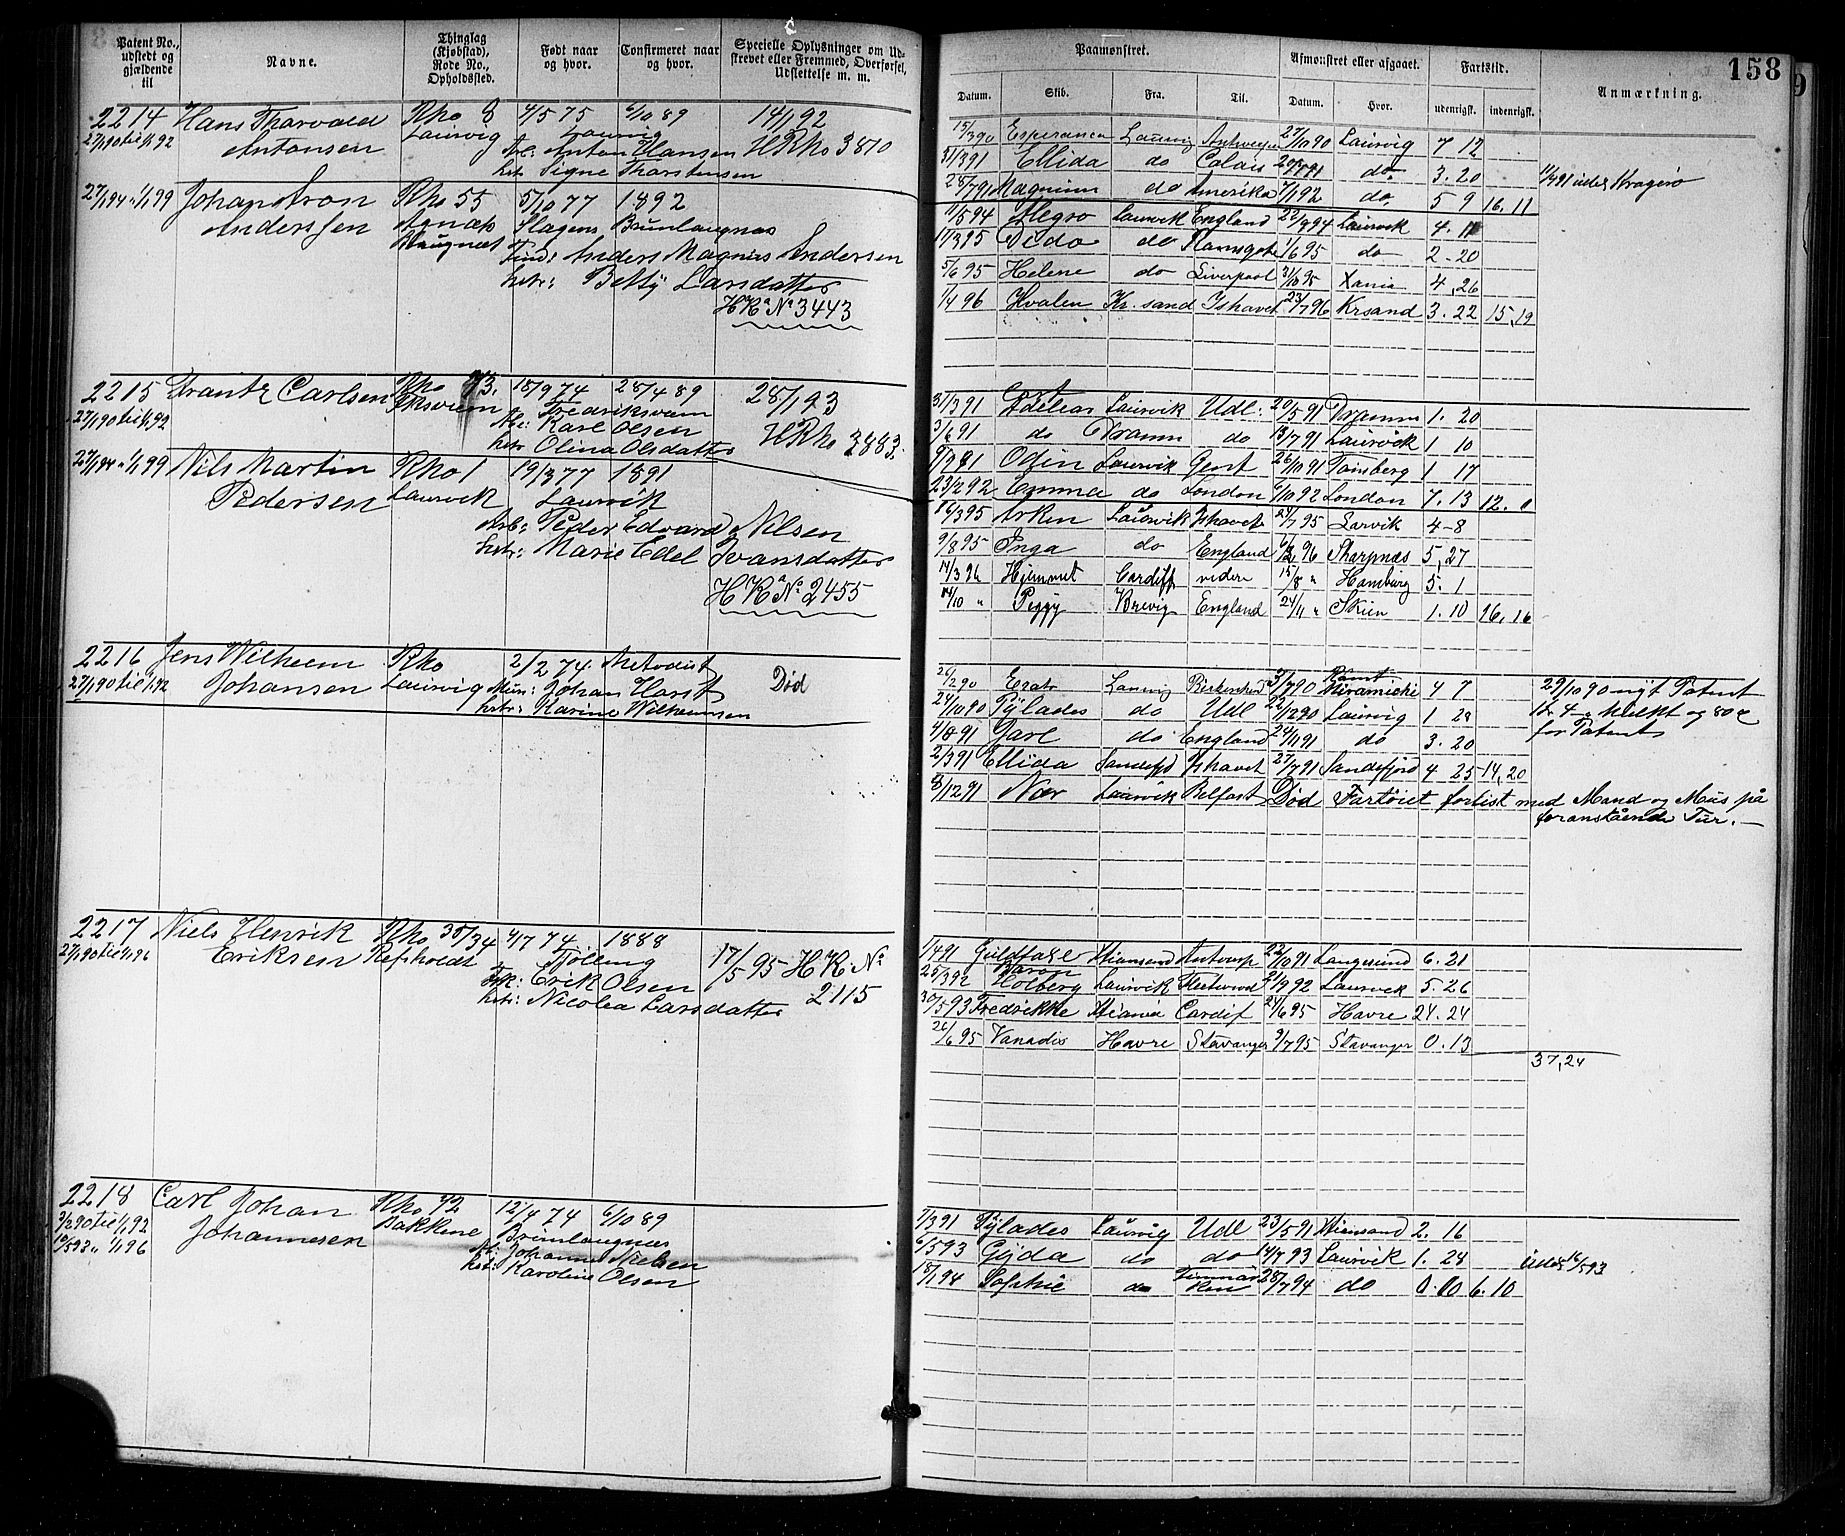 158
Patent No., udstedt og gjældende til
Navne.
Thinglag (Kjøbstad), Rode No., Opholdssted.
Født naar og hvor.
Confirmeret naar og hvor.
Specielle Oplysninger om Udskrevet eller Fremmed, Overførsel, Udslettelse m. m.
Paamønstret.
Afmønstret eller afgaaet.
Fartstid.
Anmærkning.
Datum. Skib. Fra. Til. Datum. Hvor. udenrigsk. indenrigsk.
2214 Hans Thorvald Rno 8 4/5 75 6/10 89 14/1 92
27/1 90 til 1/1 92 Antonsen Laurvig Laurvig
Anton Hansen HRno 3810
Signe Thorstensen
27/1 94 " 1/1 99 Johan Aron Rno 55 5/10 77 1892
Anderssen Agnæs Slagen Brunlaugnæs
Anders Magnus Andersen
Betty Larsdatter
HR No 3443
2215 Frantz Carlsen Rno 18/9 74 28/4 89 28/1 93
27/1 90 til 1/1 92 Fredriksværn
Karl Olsen HRno 3883.
Olina Olsdatter
27/1 94 " 1/1 99 Nils Martin Rno 1 19/3 77 1891
Pedersen Laurvik Laurvik
Arb: Peder Edvard Nilsen
hstr: Marie Edel Ivansdatter
HR No 2455
2216 Jens Wilhelm Rno 2/2 74. Metodist
27/1 90 til 1/1 92 Johansen Laurvig Mur: Johan Horst Død
hstr: Karine Wilhelmsen
2217 Niels Henrik Rno 35/34 4/7 74 1888 17/5 95 HR No
27/1 90 til 1/1 96 Eriksen Refsholdt Tjølling
Erik Olsen 2115
hstr: Nicolea Larsdatter
2218 Carl Johan Rno 42 12/4 74 6/10 89
3/2 90 til 1/1 92 Johannesen Bakkene Brunlaugnæs
10/5 93 " 1/1 96 Johannes Nielsen
Karoline Olsen
15/3 90 Esperance Laurvig Antwerpen 27/10 90 Laurvig 7 12
31/3 91 Ellida do Calais do 3. 20
28/7 91 Magnum do Amerika 7/1 92 do 5 9 16. 11
11/5 94 Allegro Laurvik England 22/8 94 Laurvik 4. 11
11/3 95 Dido do Ramsgate 1/6 95 do 2-20
5/6 95 Helene do Liverpool 31/10 95 Xania 4,26
1/4 96 Hvalen Kr.sand Ishavet 23/7 96 Krsand 3. 22 15,19
31/3 91 Laurvik Udl: 20/5 91 Dramm 1. 20
3/6 91 do Dramm do 13/7 91 Laurvik 1 10
9/9 91 Odin Laurvik Gent 26/10 91 Tønsberg 1 17
23/2 92 Emma do London 6/10 92 London 7. 13 12. 0
16/3 95 Arken Laurvik Ishavet 24/7 95 Larvik 4-8
9/8 95 Inga do England 6/2 96 Sharpnæs 5,27
14/3 96 Hjemmet Cardiff videre 15/8 " Hamburg 5. 1
14/10 " Peggy Brevig England 24/11 " Skien 1. 10 16. 16
26/2 90 Erato Laurvig Birkenhead 3/7 90 Miramichi 4 7
24/10 90 Pylades do Udl 22/12 90 Laurvig 1 28
4/8 91 Jarl do England 24/11 91 do 3. 20
2/3 91 Ellida Sandefjd Ishavet 27/7 91 Sandefjord 4 25 14,20
8/12 91 Nær Laurvik Belfast Død Fartøiet forlist med Mand og Mus på
foranstående Tur. —
29/10 90 nyt Patent
for Patent
1/4 91 Guldfaxe Xiansand Antwerp 22/10 91 Langesund 6. 21
25/3 92 Baron Holberg Laurvik Fleetwood 21/9 92 Laurvik 5. 26
30/5 93 Fredrikke Xiania Cardif 24/6 95 Havre 24. 24
26/6 95 Vanadis Havre Stavanger 9/7 95 Stavanger 0. 13
37,24
7/3 91 Pylades Laurvig Udl 23/5 91 Xiansand 2. 16
6/5 93 Gyda do do 14/7 93 Laurvik 1. 28
18/1 94 Sophie do Finmarken 28/7 94 do 0. 00 6. 10